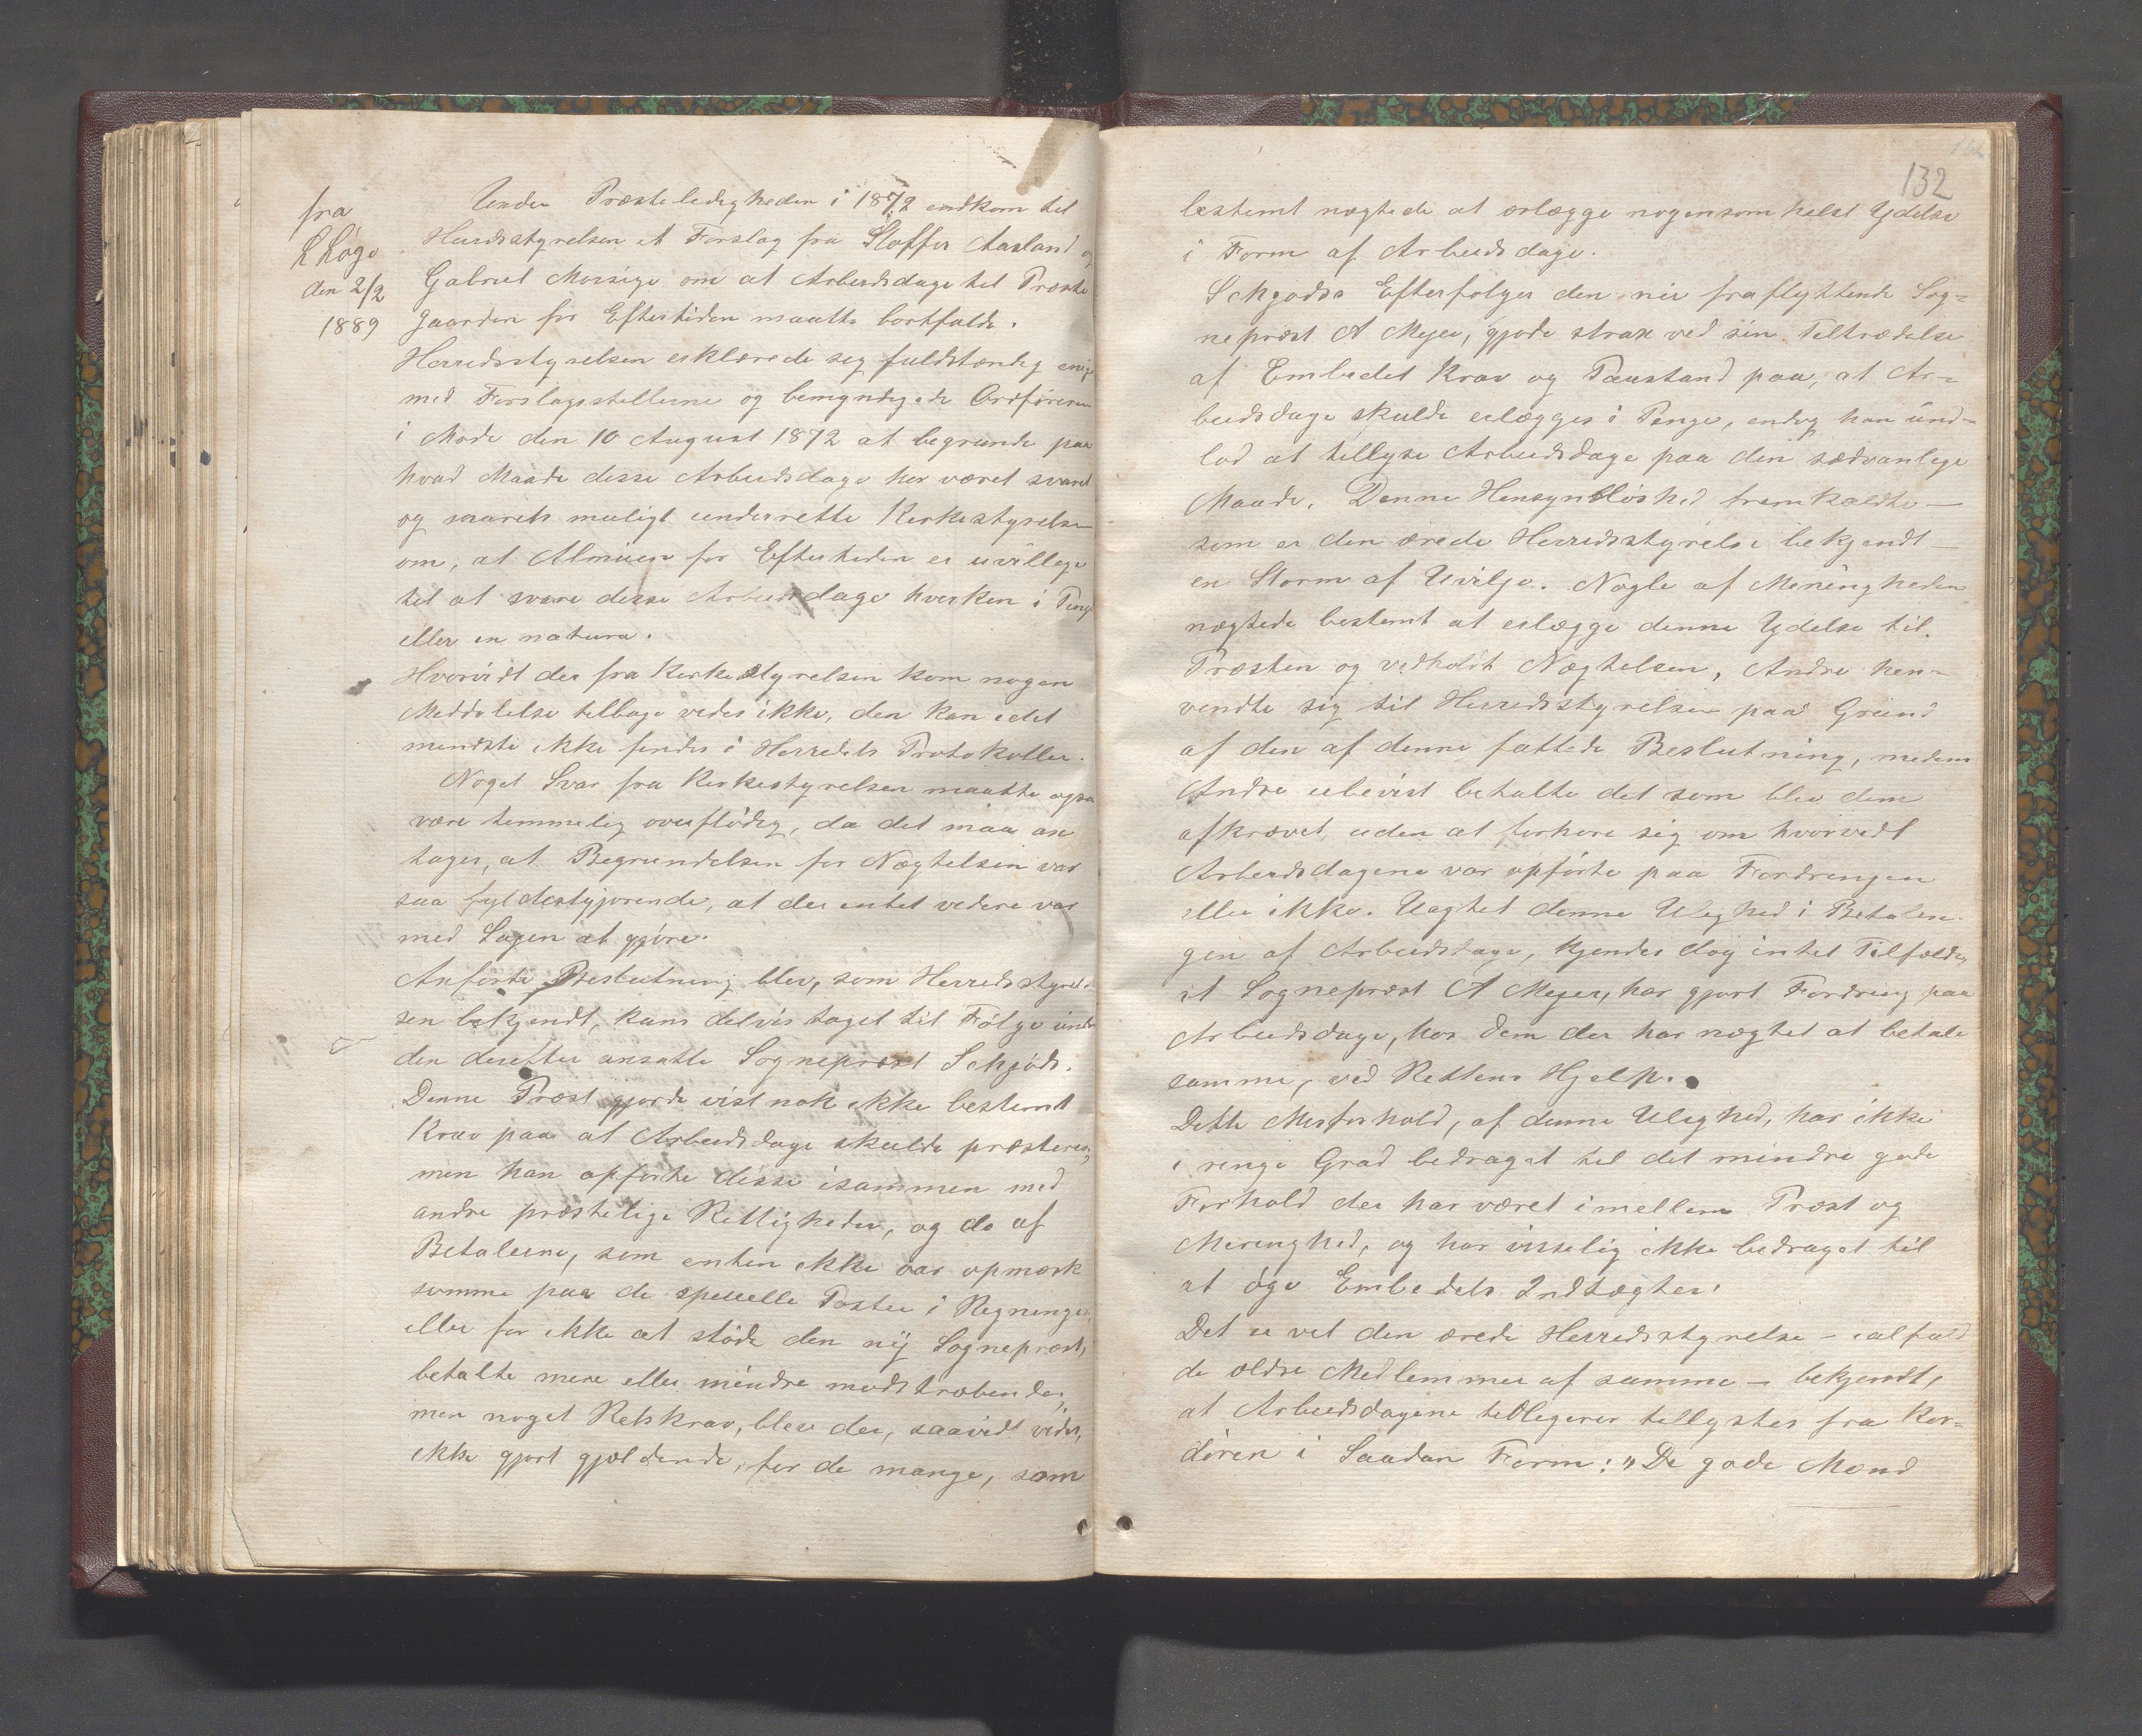 fra
L Løge
den 2/2
1889
Under Præsteledigheden i 1872 indkom til
Herredsstyrelsen et Forslag fra Stoffer Aasland og
Gabriel Morsige om at Arbeidsdage til Præste
gaarden for Eftertiden maatte bortfalde.
Herredsstyrelsen erklærede seg fuldstændig enig
med Forslagsstellerne og bemyndigede Ordføreren
i Møde den 10 August 1872 at begrunde paa
hvad Maade disse Arbeidsdage har været svaret
og snarest muligt underrette Kirkestyrelsen
om, at Almuen for Eftertiden er uvillige
til at svare disse Arbeidsdage hverken i Penge
eller in natura.
Hvorvidt der fra Kirkestyrelsen kom nogen
Meddelelse tilbage vides ikke, den kan idet
mindste ikke findes i Herredets Protokoller.
Noget Svar fra Kirkestyrelsen maatte ogsaa
være temmelig overflødig, da det maa an
tages, at Begrundelsen for Nægtelsen var
saa fyldestgjørende, at der intet videre var
med Sagen at gjøre.
Anførte Beslutning blev, som Herredsstyrel-
sen bekjendt, kuns delvis taget til Følge under
den derefter ansatte Sogneprest Schjøds.
Denne Præst gjorde vistnok ikke bestemt
Krav paa at Arbeidsdage skulde præsteres,
men han opførte disse isammen med
andre præstelige Rettigheder, og de af
Betalerne, som enten ikke var opmærk
somme paa de spesielle Poster i Regningen,
eller for ikke at støde den nÿ Sogneprest,
betalte mere eller mindre modstræbende,
men noget Retskrav, blev der, saavidt vides,
ikke gjort gjældende, for de mange, som
132
bestemt nægtede at erlægge nogensomhelst Ydelse
i Form af Arbeidsdage.
Schjødss Efterfølger den nu fraflyttende Sog-
neprest A Meyer, gjorde strax ved sin Tiltrædelse
af Embedet Krav og Paastand paa, at Ar-
beidsdage skulde erlægges i Penge, endog han und-
lod at tillyse Arbeidsdage paa den sædvanlige
Maade. Denne Hensynsløshed fremkaldte —
som er den ærede Herredsstyrelse bekjendt —
en Storm af Uvilje. Nogle af Menigheden
nægtede bestemt at erlægge denne Ydelse til
Præsten og vedholdt Nægtelsen, Andre hen-
vendte sig til Herredsstyrelsen paa Grund
af den af denne fattede Beslutning, medens
Andre ubevist betalte det som blev dem
afkrævet, uden at forhøre sig om hvorvidt
Arbeidsdagene var opførte paa Fordringen
eller ikke. Uagtet denne Ulighed i Betalin-
gen af Arbeidsdage, kjendes dog intet Tilfælde,
at Sogneprest A Meyer, har gjort Fordring paa
Arbeidsdage, hos dem der har nægtet at betale
samme, ved Rettens Hjelp.
Dette Misforhold, af denne Ulighed, har ikke
i ringe Grad bedraget til det mindre gode
Forhold der har været imellem Præst og
Menighed, og har visselig ikke bedraget til
at øge Embedets Indtægter.
Det er vel den ærede Herredsstyrelse – ialfald
de ældre Medlemmer af samme – bekjendt,
at Arbeidsdagene tidligere tillystes fra Kor-
døren i Saadan Form: "De gode Mænd